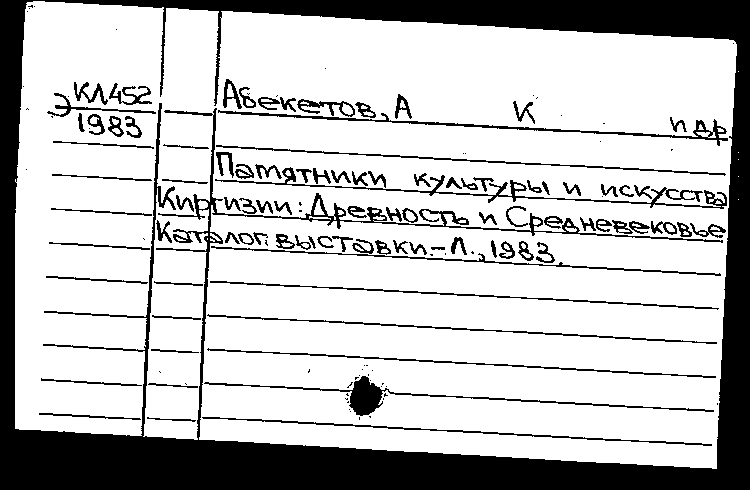 Э КЛ452
1983
Абекетов, А К и др.
Памятники культуры и искусства
Киргизии: Древность и Средневековье
Каталог выставки.-Л., 1983.